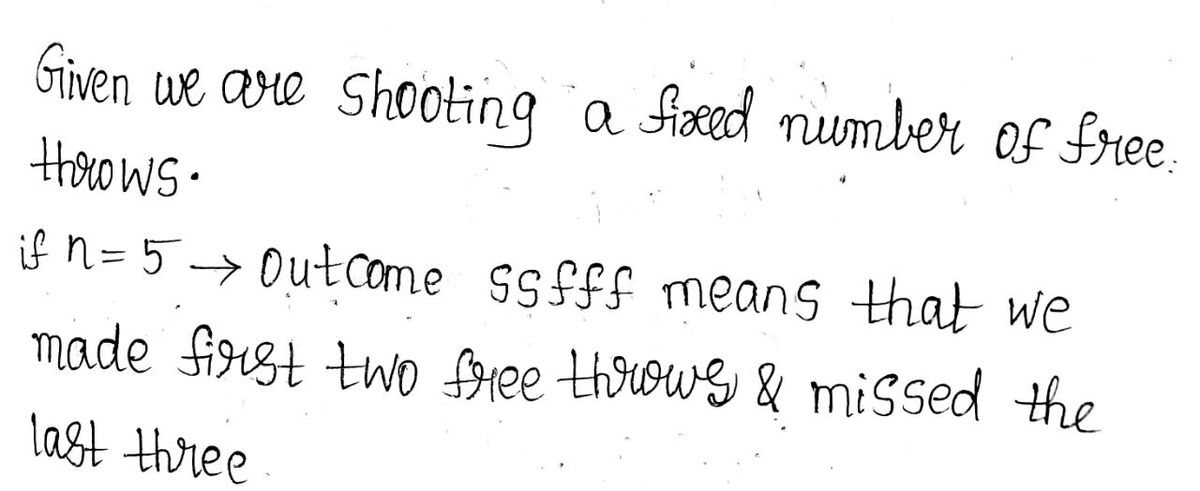 Given we are shooting a fixed number of free
throws.
if n = 5 → Outcome ssfff means that we
made first two free throws & missed the
last three